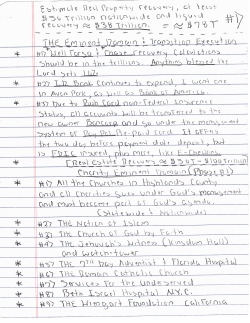 Estimate Real Property recovery, at least
$36 Trillion nationwide and liquid
recovery $38 Trillion = ≈ $78T #10
The Eminent Domain & Transition Execution
* #1) Well Fargo & Chase recovery Collections
should be in the trillions. Anything blessed the
Lord gets 10%
* #2) Bank continues to expand, I want one
in Avon Park, as well as Bank of America.
* #3) Due to Rush Card non-federal insurance
status, all accounts will be transferred to the
new owner Bancorp and go under the name, want
system of Pay Pal Pre-paid card. It offers
the two day before payment date deposit, but
is FDIC insured, plus more, like E-Checking.
* Real Estate Recovery ≈ $36T - $100 Trillion
Charity Eminent Domain
* #1) All the churches in Highlands County
and all Charities goes under God's management
and must become part of God's agenda.
(Statewide & Nationwide)
* #2) The Nation of Islam
* #3) The Church of God by Faith
* #4) The Jehovah's Witness (Kingdom Hall)
and Watchtower
* #5) The 7th Day Adventist & Florida Hospital
* #6) The Roman Catholic Church
* #7) Services for the Underserved
* #8) Beth Israel Hospital N.Y.C.
* #9) The Wingart Foundation California